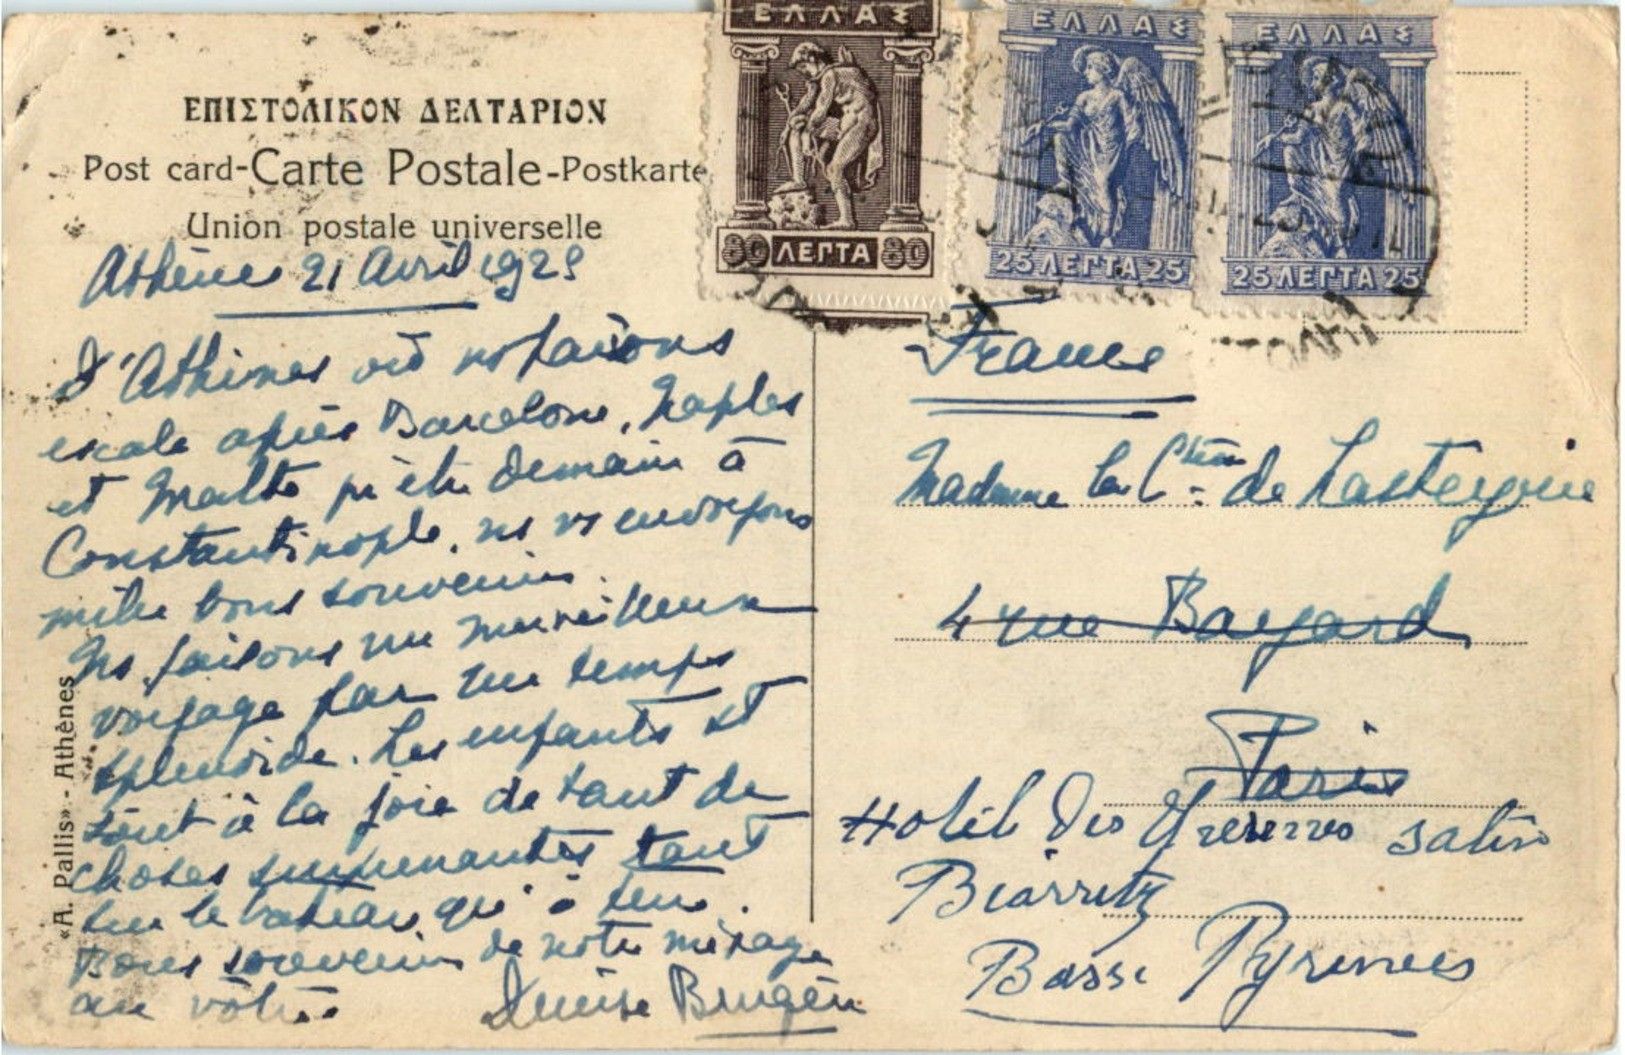 ΕΛΛΑΣ
80 ΛΕΠΤΑ 80
ΕΛΛΑΣ
25 ΛΕΠΤΑ 25
ΕΛΛΑΣ
25 ΛΕΠΤΑ 25
ΕΠΙΣΤΟΛΙΚΟΝ ΔΕΛΤΑΡΙΟΝ
Post card-Carte Postale-Postkarte
Union postale universelle
Athènes 21 Avril 1925
D'Athènes où ns faisons
escale après Barcelone, Naples
et Malte pr être demain à
Constantinople, ns vs envoyons
mille bons souvenirs.
Ns faisons un merveilleux
voyage par un temps
splendide. Les enfants st
tout à la joie de tant de
choses surprenantes tant
sur le bateau qu'à terre.
Bons souvenirs de notre ménage
au vôtre Denise
«A. Pallis» - Athènes
France
Madame la Ctesse de Lasteyrie
4 rue Bayard
Paris
Hotel des
Biarritz
Basse Pyrenees